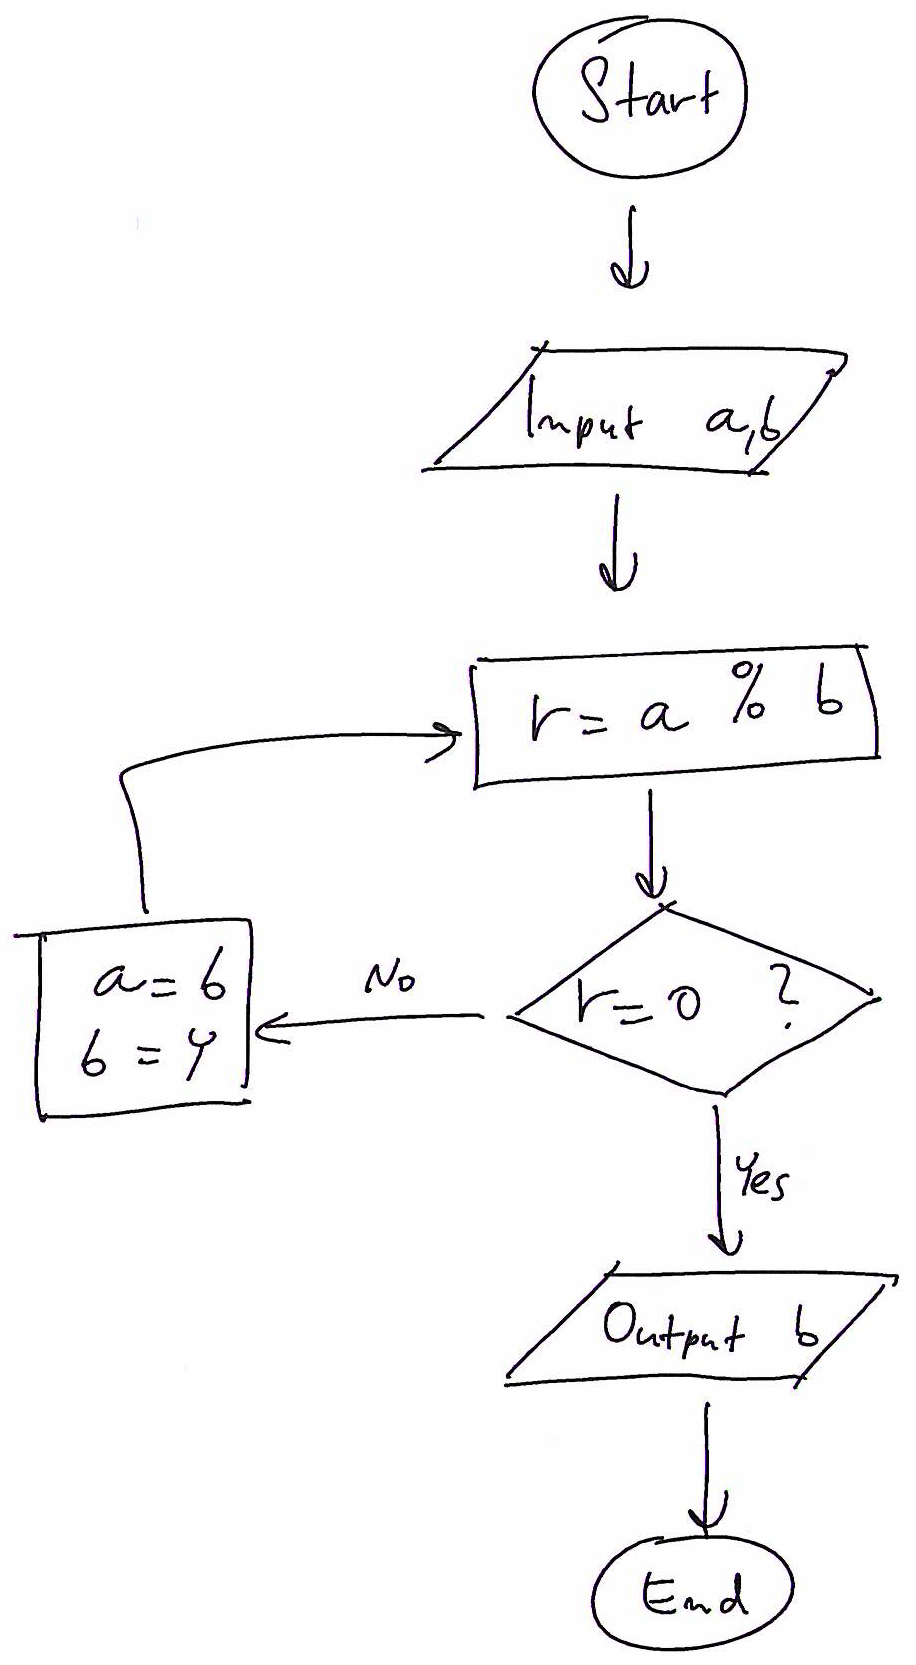 Start
Input a,b
r = a % b
r = 0 ?
No
a = b
b = r
Yes
Output b
End